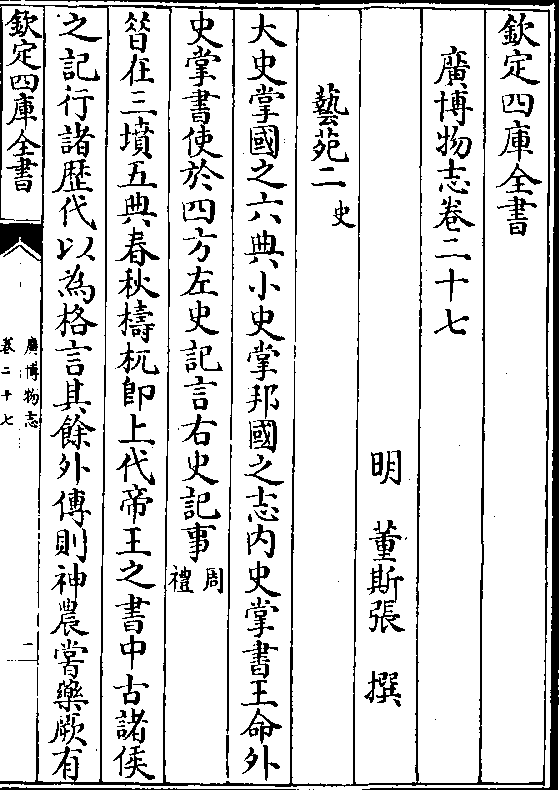 欽定四庫全書
廣博物志卷二十七
明 董斯張 撰
藝苑二 史
大史掌國之六典小史掌邦國之志内史掌書王命外
史掌書使於四方左史記言右史記事 周禮
昔在三墳五典春秋檮杌即上代帝王之書中古諸侯
之記行諸歴代以為格言其餘外傳則神農嘗藥厥有
欽定四庫全書
廣博物志
卷二十七
一